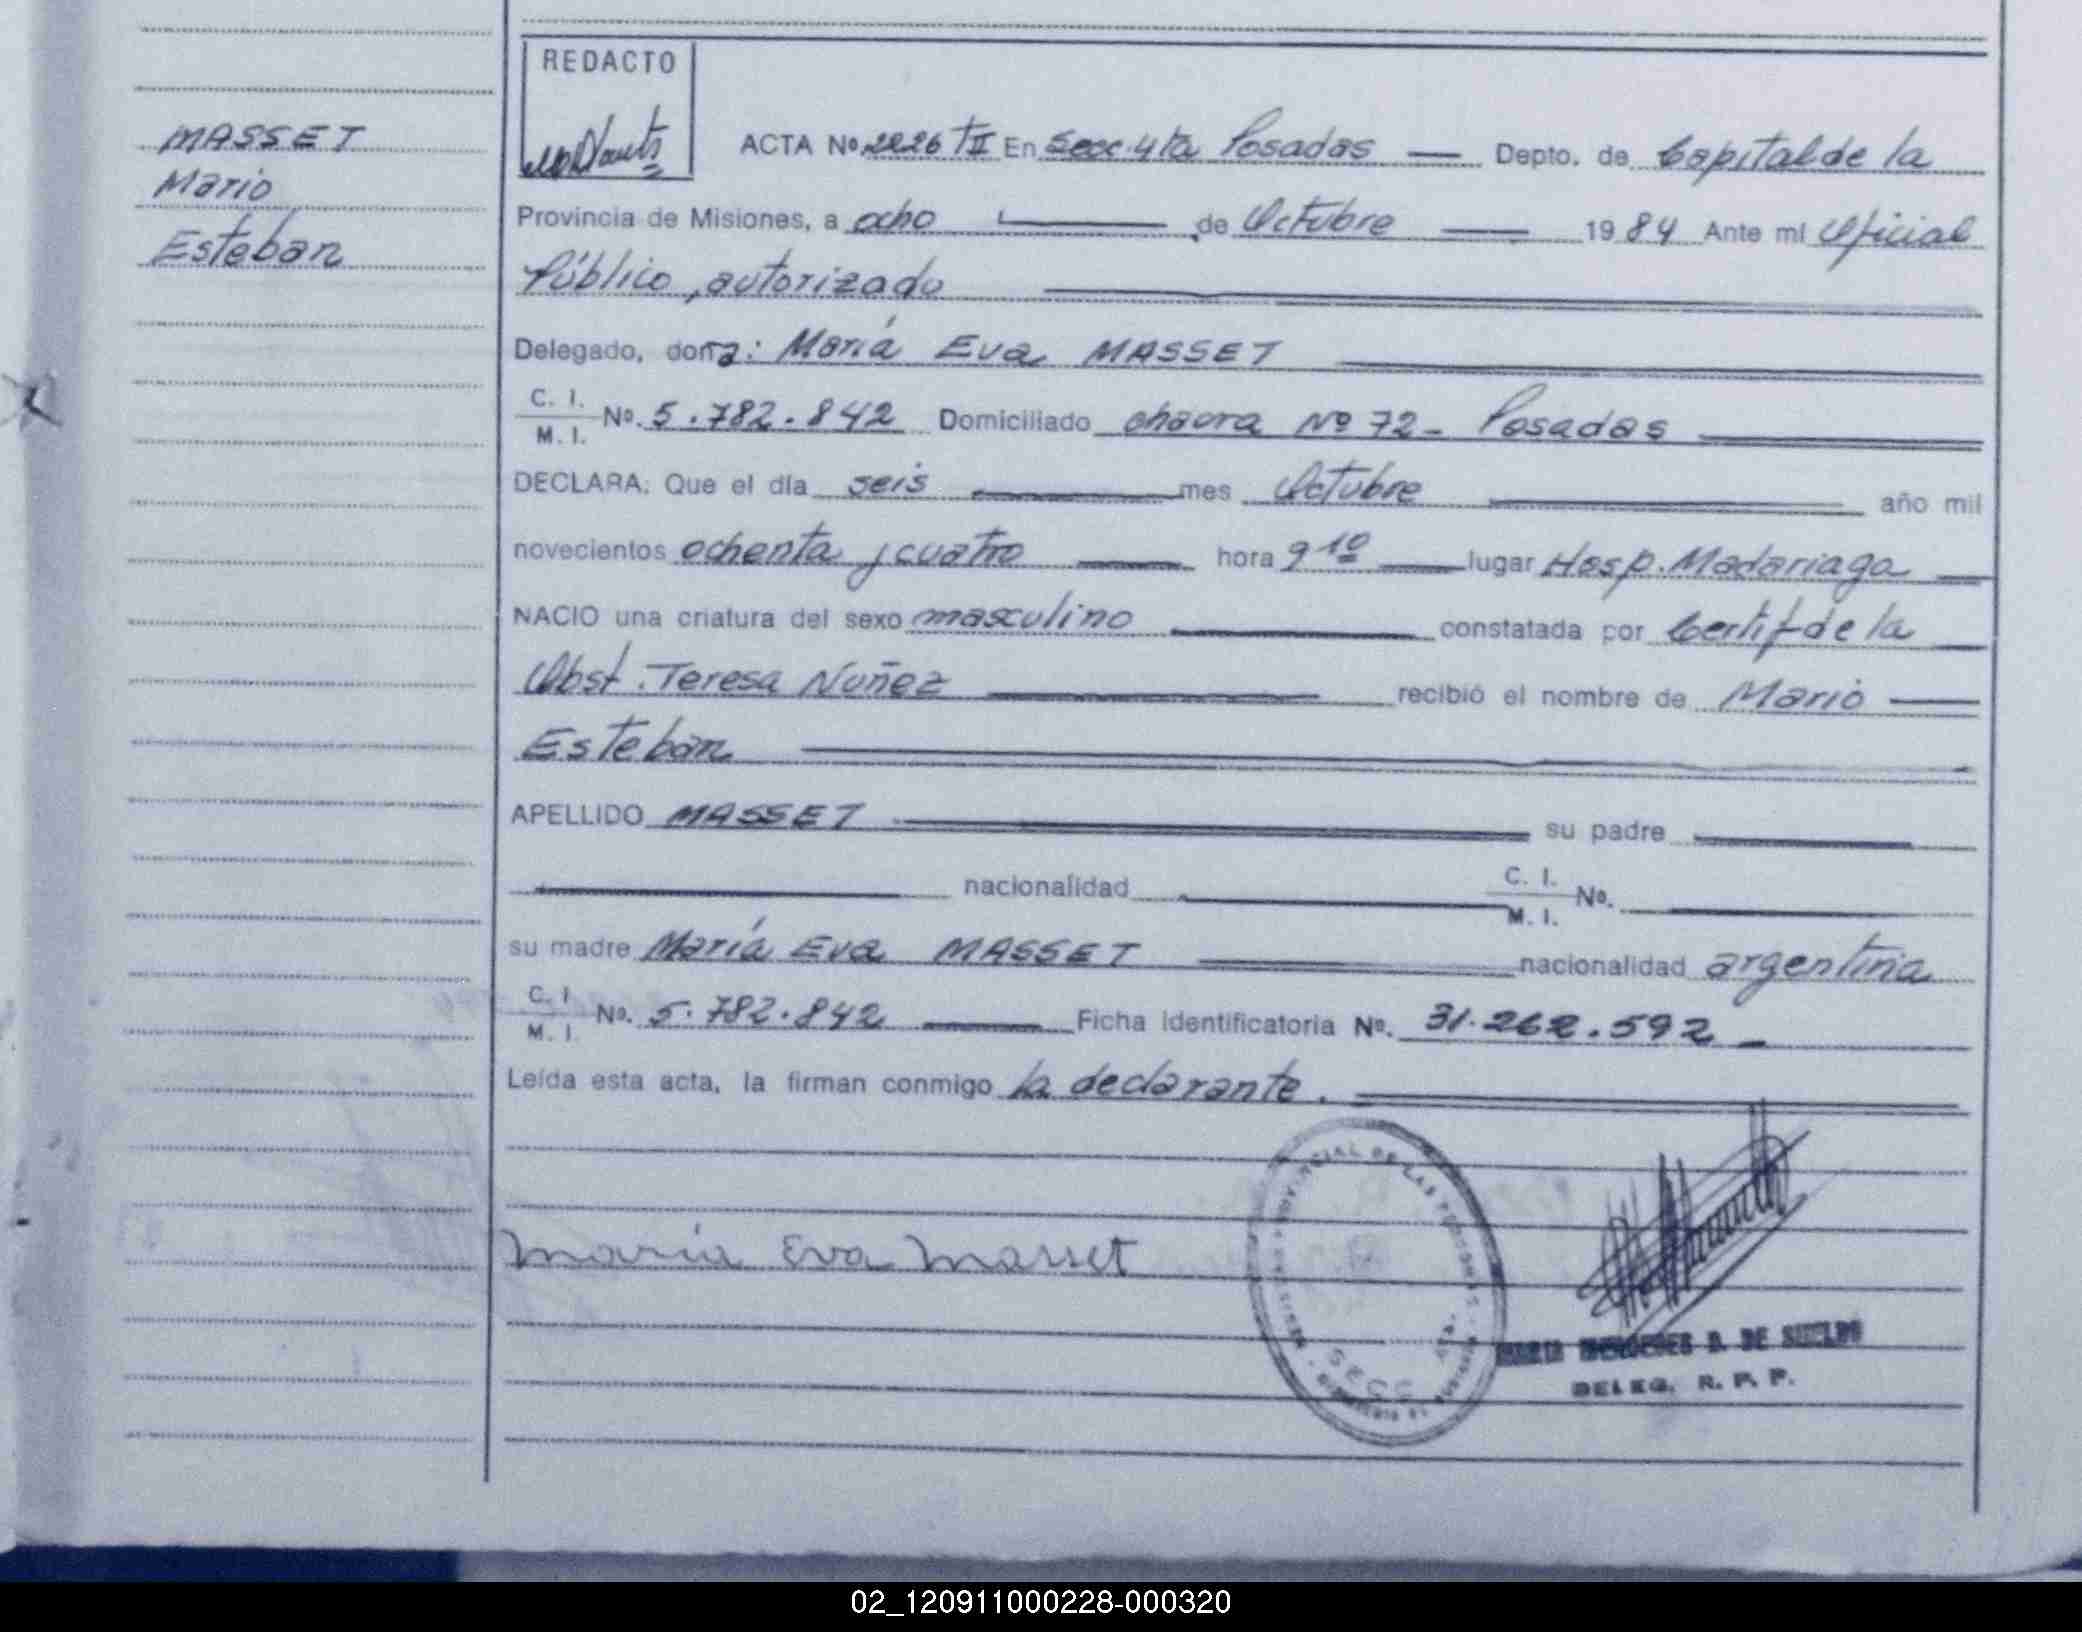 REDACTO
MASSET
Mario
Esteban
ACTA Nº 2226 TII En Secc. 4ta Posadas Depto. de Capital de la
Provincia de Misiones, a ocho de Octubre 1984 Ante mi Oficial
Público, autorizado
Delegado, doña: María Eva MASSET
C. I.
M. I. Nº. 5.782.842 Domiciliado chacra Nº 72- Posadas
DECLARA: Que el día seis mes Octubre año mil
novecientos ochenta y cuatro hora 9 10 lugar Hosp. Madariaga
NACIO una criatura del sexo masculino constatada por Certif de la
Obst. Teresa Nuñez recibió el nombre de Mario
Esteban
APELLIDO MASSET su padre
nacionalidad C. I.
M. I. Nº.
su madre María Eva MASSET nacionalidad argentina
C. I.
M. I. Nº. 5.782.842 Ficha Identificatoria Nº. 31.262.592
Leída esta acta, la firman conmigo la declarante.
María Eva Masset
PROVINCIAL DE LAS PERSONAS
SECC 4ta.
DE SUELDO
DELEG. R. P. P.
02_120911000228-000320